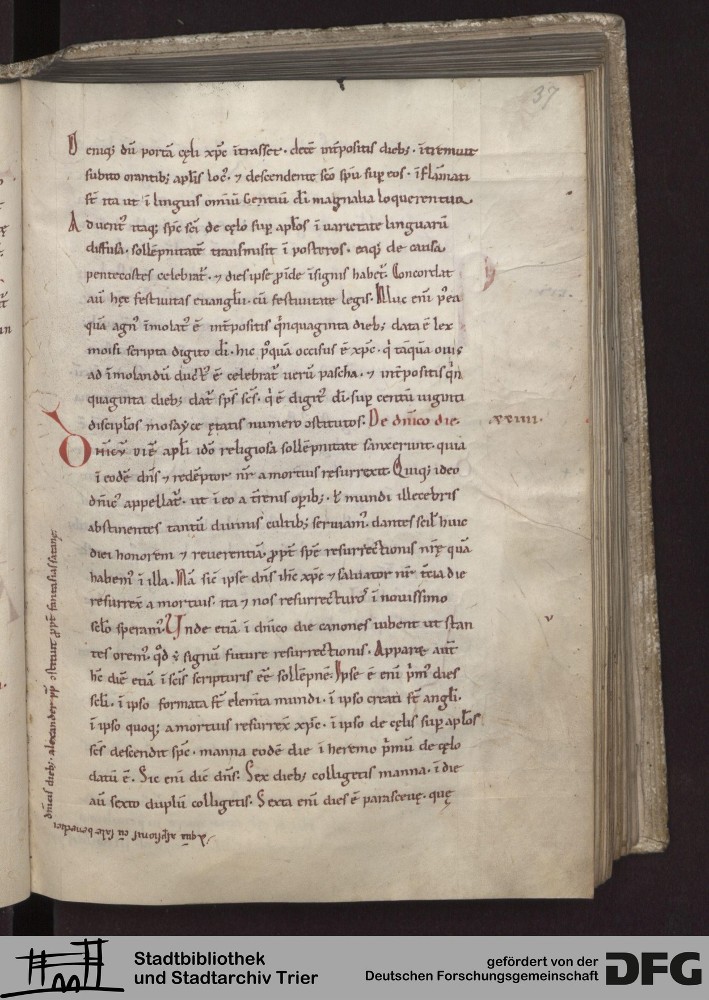 37
Deniq; dũ portã cęli xp̃c ĩtrasset. decẽ int̃positis dieb; ĩtremuit
subito orantib; apl̃is loc̾. ⁊ descendente sc̃o sp̃u sup̲ eos. ĩflãmati
st̃ ita ut ĩ linguis om̃iũ Gentiũ dĩ magnalia loquerentur.
Aduent̾ itaq; sp̃c sc̃i de cęlo sup̲ apl̃os ĩ uarietate linguarũ
diffusa. sollẽpnitatẽ transmisit ĩ posteros. eaq; de causa
pentecostes celebrat̃. ⁊ dies ipse p̲ide ĩsignis habet̃. Concordat
aũ hęc festiuitas euangl̃ii. cũ festiuitate legis. Illuc eni̅ p̾ea
quã agn̾ ĩmolat̾ ẽ int̃positis qĩnquaginta dieb; data ẽ lex
moisi scripta digito dĩ. hic p̾quã occisus ẽ xp̃c. q̾ tãquã ouis
ad ĩmolandũ duct̾ ẽ celebrat̃ uerũ pascha. ⁊ int̃positis qĩn
quaginta dieb; dat̃ sp̃s sc̃s. q̾ ẽ digit̾ dĩ. sup̲ centũ uiginti
discipl̃os mosayce ętatis numero ↄstitutos. De dñico die. .xxiiii.
Dñic̾ diẽ apl̃i idõ religiosa sollẽpnitate sanxerunt. quia
ĩ eodẽ dñs ⁊ redẽptor nr̃ a mortuis resurrexit. Quiq; ideo
dñic̾ appellat̃. ut ĩ eo a t̃renis op̲ib;. ł mundi illecebris
abstinentes tantũ diuinis cultib; seruiam̾. dantes scil̃ huic
diei honorem ⁊ reuerentiã. p̲pt̃ spẽ resurrectionis nr̃ę quã
habem̾ ĩ illa. Nã sic̃ ipse dñs ih̃c xp̃c ⁊ saluator nr̃ t̃cia die
resurrex̃ a mortuis. ita ⁊ nos resurrecturos ĩ nouissimo
scl̃o speram̾. Unde etiã ĩ dñico die canones iubent ut stan
tes orem̾. qd̾ ẽ signũ future resurrectionis. Apparet aũt
hc̃ diẽ etiã ĩ sc̃is scripturis eẽ sollẽpnẽ. Ipse ẽ eni̅ p̾m̾ dies
scl̃i. ĩ ipso formata st̃ elem̃ta mundi. ĩ ipso creati st̃ angl̃i.
ĩ ipso quoq; a mortuis resurrex̃ xp̃c. ĩ ipso de cęlis sup̲ apl̃os
sc̃s descendit sp̃c. manna eodẽ die ĩ heremo p̾mũ de cęlo
datũ ẽ. Sic eni̅ dic̃ dñs. Sex dieb; colligetis manna. ĩ die
aũ sexto duplũ colligetis. Sexta eni̅ dies ẽ parasceuę. quę
dñicis dieb;. alexander pp̃ ↄstituit p̲pt̃ fantasias satanę
Aqua aspsionis cũ sale benedici
Stadtbibliothek
und Stadtarchiv Trier
gefördert von der
Deutschen Forschungsgemeinschaft
DFG